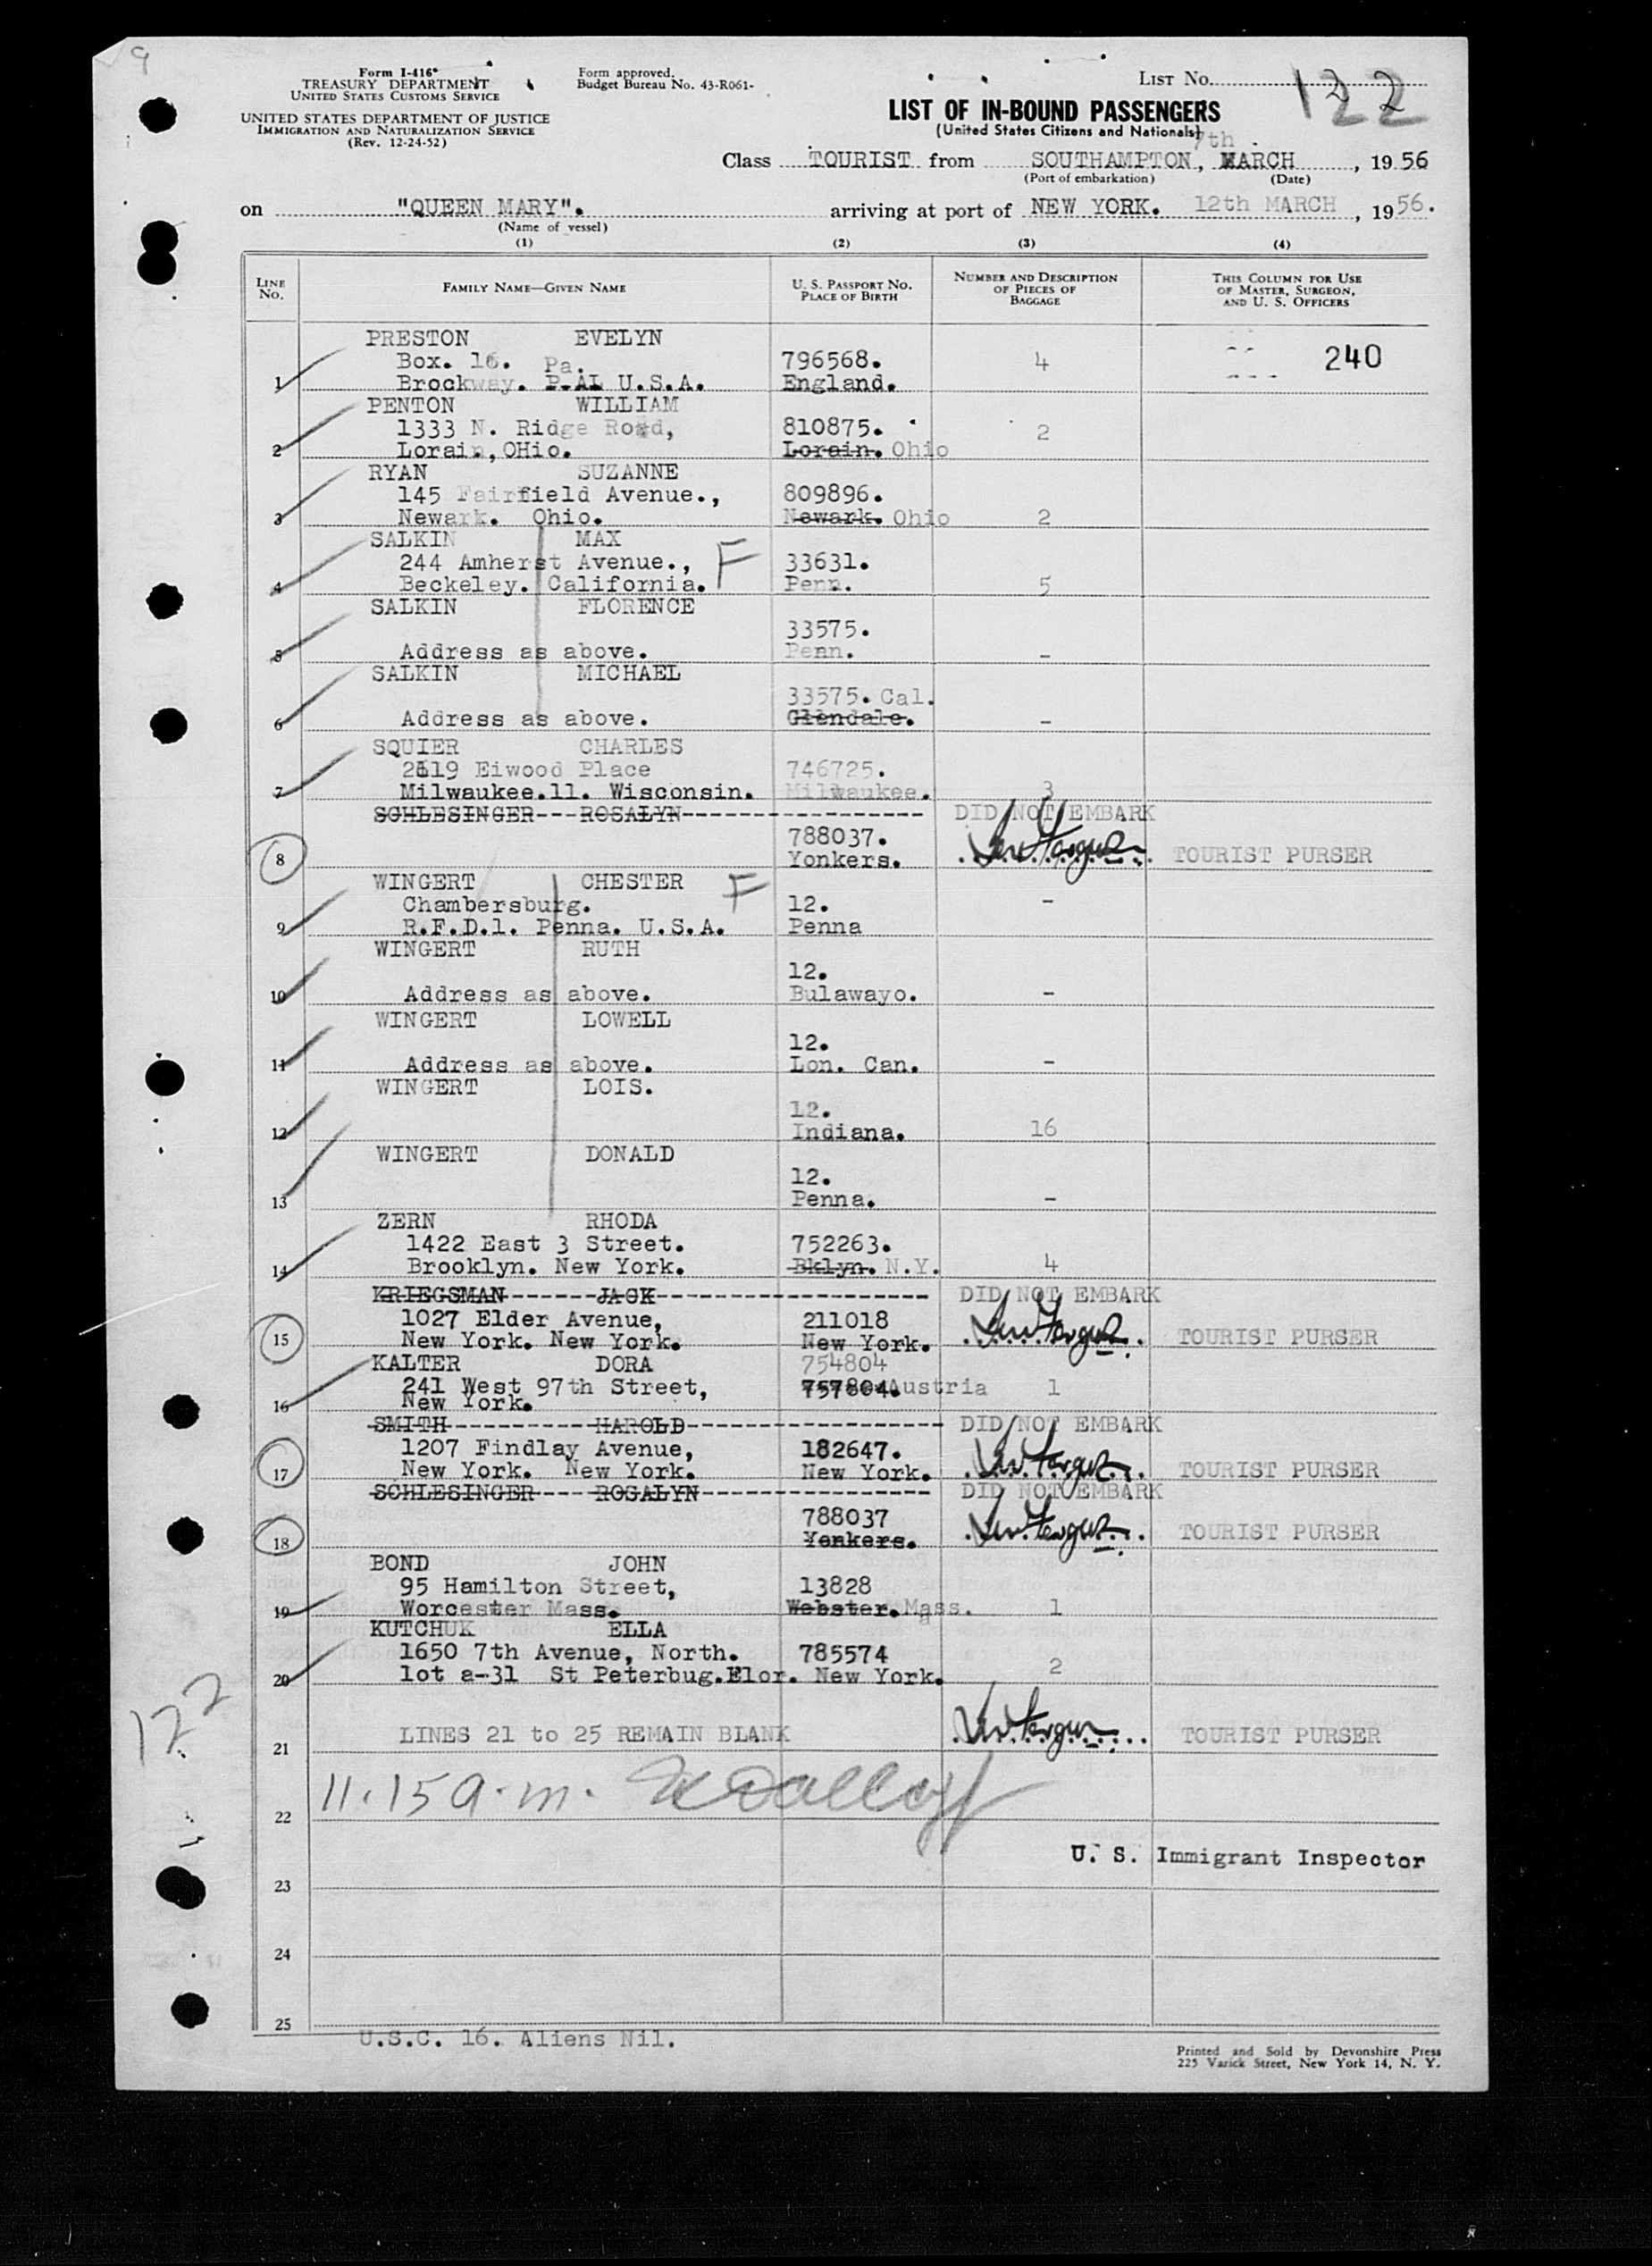 9
Form I-416
TREASURY DEPARTMENT
UNITED STATES CUSTOMS SERVICE
UNITED STATES DEPARTMENT OF JUSTICE
IMMIGRATION AND NATURALIZATION SERVICE
(Rev. 12-24-52)
Form approved.
Budget Bureau No. 43-R061-
LIST NO. 122
LIST OF IN-BOUND PASSENGERS
(United States Citizens and Nationals)
7th
Class TOURIST from SOUTHAMPTON, MARCH, 19 56
(Port of embarkation) (Date)
on "QUEEN MARY". arriving at port of NEW YORK. 12th MARCH, 19 56.
(Name of vessel)
(1) (2) (3) (4)
LINE NO.
FAMILY NAME—GIVEN NAME
U. S. PASSPORT NO.
PLACE OF BIRTH
NUMBER AND DESCRIPTION
OF PIECES OF
BAGGAGE
THIS COLUMN FOR USE
OF MASTER, SURGEON,
AND U. S. OFFICERS
PRESTON EVELYN
Box. 16. Pa. 796568. 4 240
1 Brockway. P.AL U.S.A. England.
PENTON WILLIAM
1333 N. Ridge Road, 810875. 2
2 Lorain, OHio. Lorain. Ohio
RYAN SUZANNE
145 Fairfield Avenue., 809896.
3 Newark. Ohio. Newark. Ohio 2
SALKIN MAX F
244 Amherst Avenue., 33631.
4 Beckeley. California. Penn. 5
SALKIN FLORENCE
33575.
5 Address as above. Penn. -
SALKIN MICHAEL
33575. Cal.
6 Address as above. Glendale. -
SQUIER CHARLES
2619 Eiwood Place 746725.
7 Milwaukee.11. Wisconsin. Milwaukee. 3
SCHLESINGER---ROSALYN---------------- DID NOT EMBARK
788037.
8 Yonkers. TOURIST PURSER
WINGERT CHESTER F
Chambersburg. 12. -
9 R.F.D.1. Penna. U.S.A. Penna
WINGERT RUTH
12.
10 Address as above. Bulawayo. -
WINGERT LOWELL
12.
11 Address as above. Lon. Can. -
WINGERT LOIS.
12.
12 Indiana. 16
WINGERT DONALD
12.
13 Penna. -
ZERN RHODA
1422 East 3 Street. 752263.
14 Brooklyn. New York. Bklyn. N.Y. 4
KRIEGSMAN------JACK------------------ DID NOT EMBARK
1027 Elder Avenue, 211018
15 New York. New York. New York. TOURIST PURSER
KALTER DORA 754804
241 West 97th Street, 757804. Austria 1
16 New York.
SMITH----------HAROLD----------------- DID NOT EMBARK
1207 Findlay Avenue, 182647.
17 New York. New York. New York. TOURIST PURSER
SCHLESINGER----ROSALYN--------------- DID NOT EMBARK
788037
18 Yonkers. TOURIST PURSER
BOND JOHN
95 Hamilton Street, 13828
19 Worcester Mass. Webster. Mass. 1
KUTCHUK ELLA
1650 7th Avenue, North. 785574 2
20 lot a-31 St Peterbug.Flor. New York.
122
LINES 21 to 25 REMAIN BLANK TOURIST PURSER
21
11.15 a.m.
22
U. S. Immigrant Inspector
23
24
25
U.S.C. 16. Aliens Nil.
Printed and Sold by Devonshire Press
225 Varick Street, New York 14, N. Y.